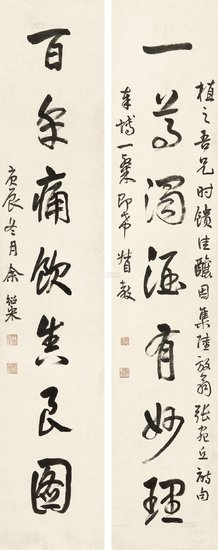 植之吾兄时饋佳釀因集陸放翁張宛丘詩句
一尊濁酒有妙理
奉博一粲即希教
百年痛飲真良圖
庚辰冬月余紹宋